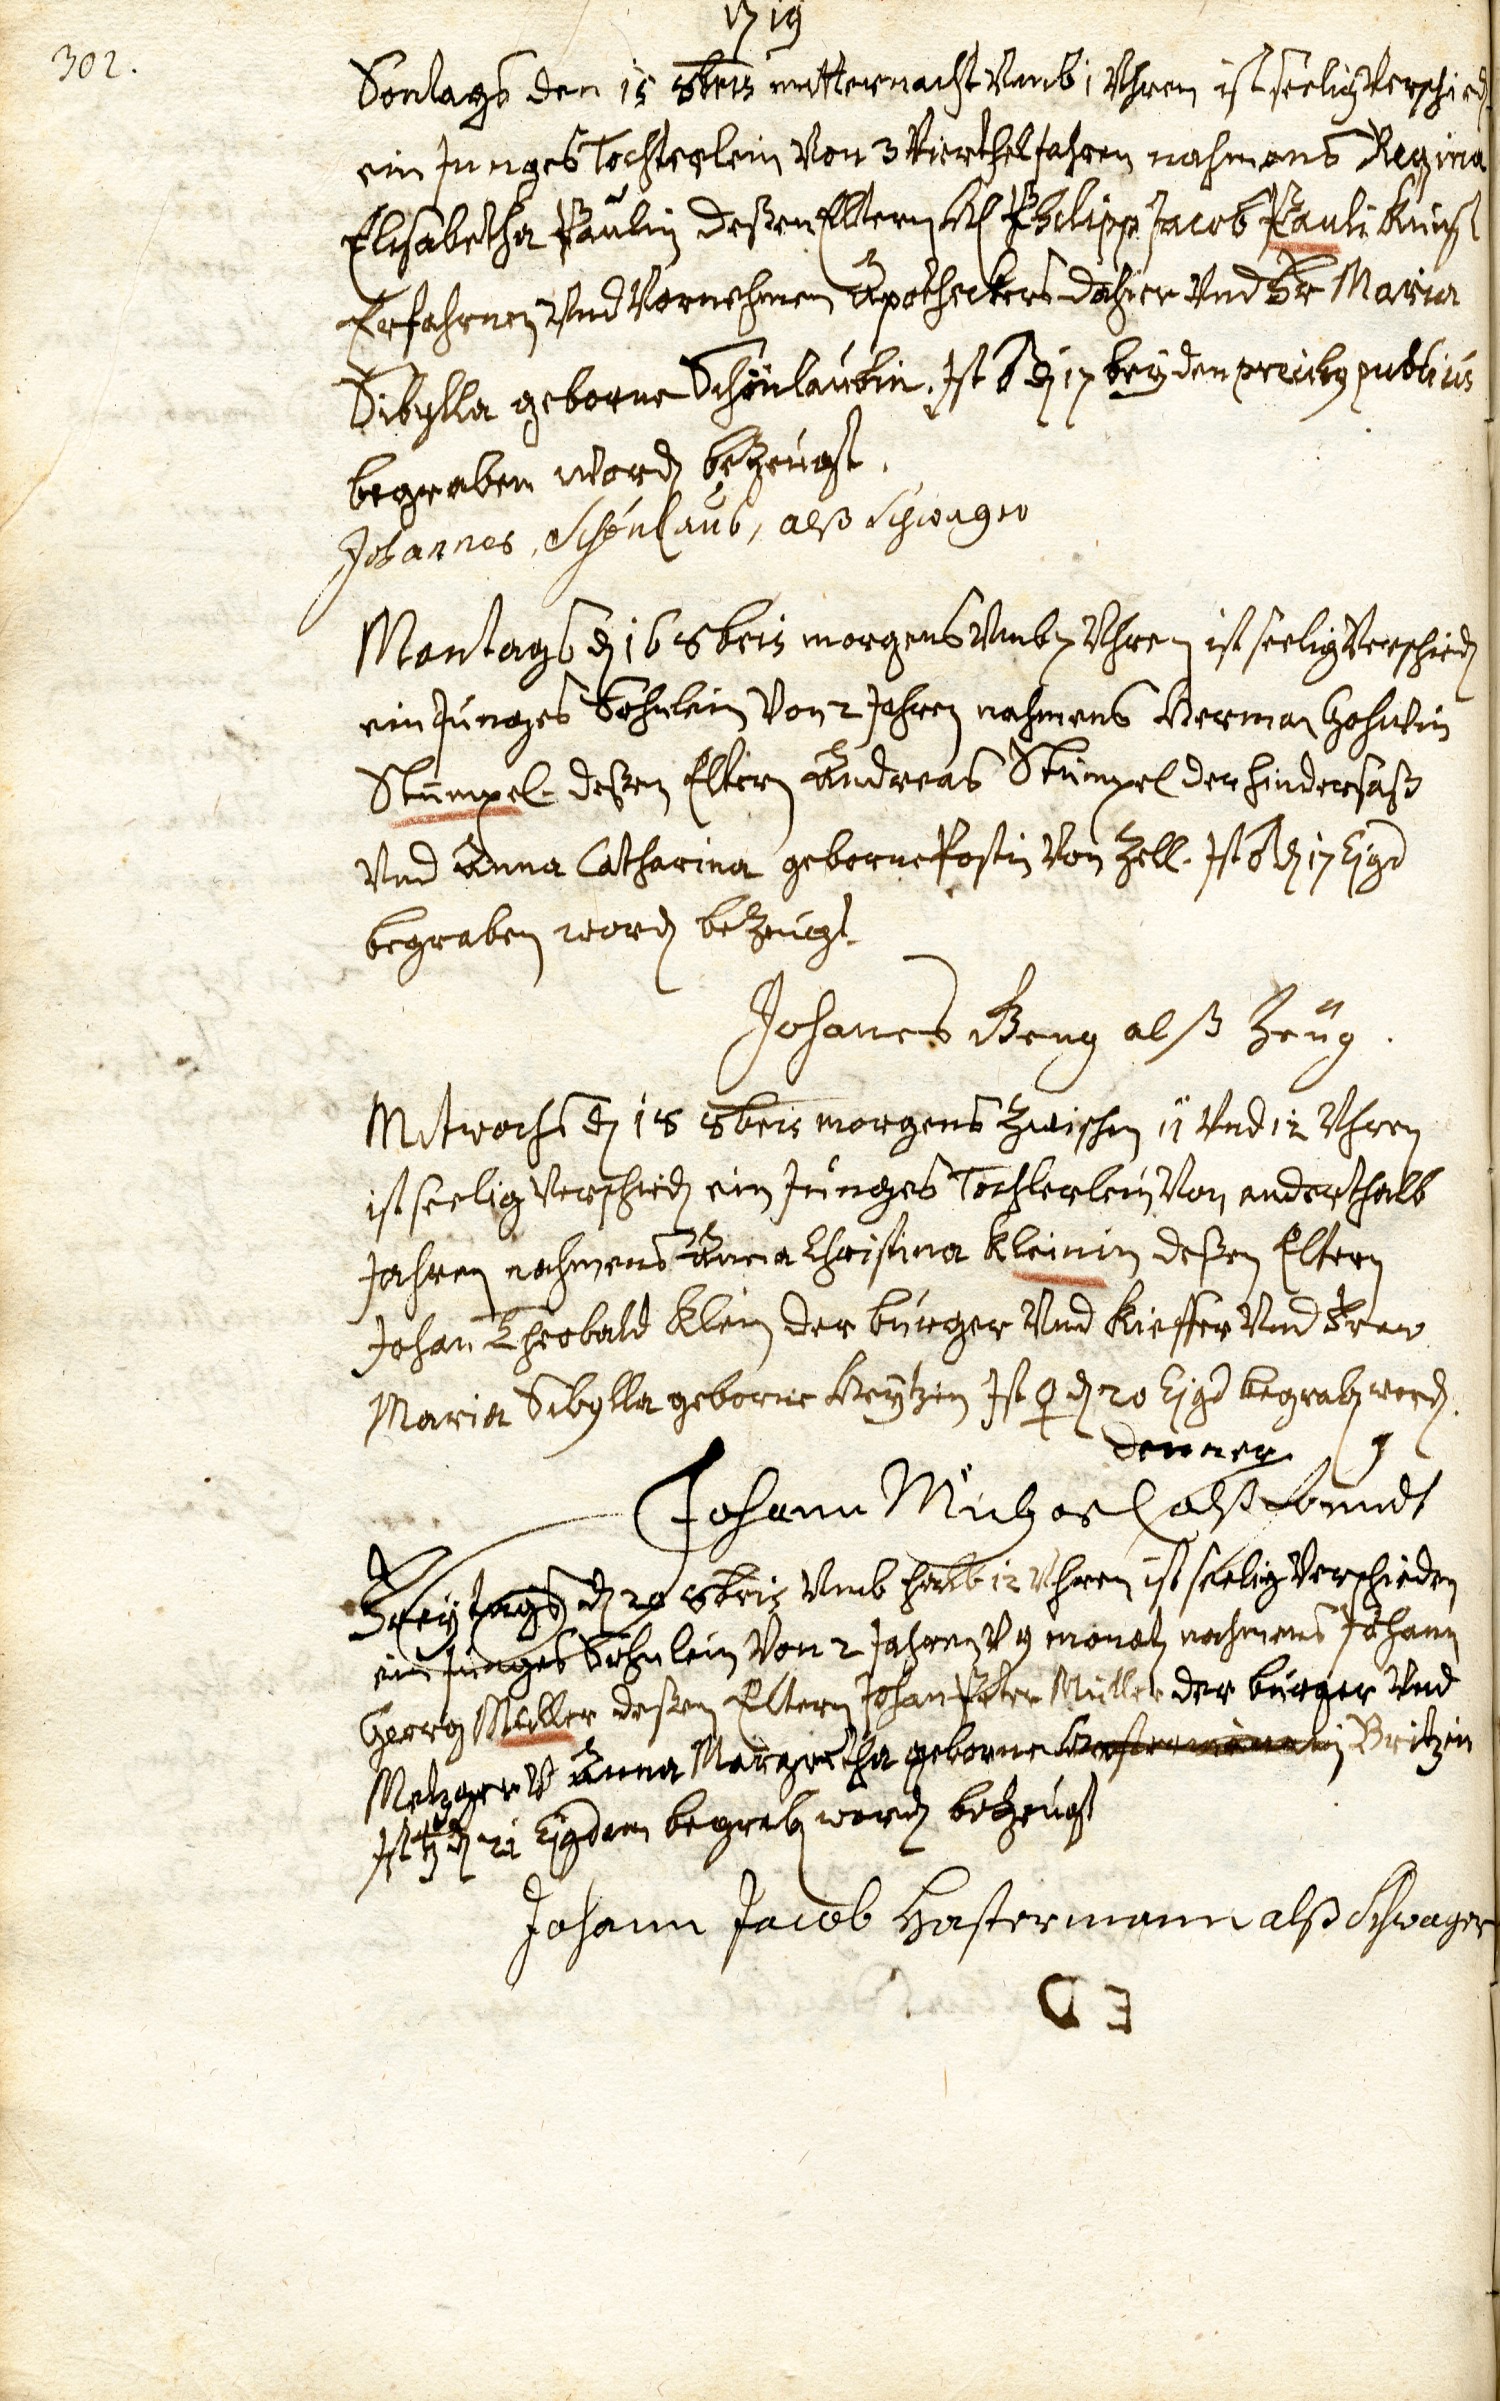 1719
302.
Sontags den 15 8bris mitternacht Vmb 1 Vhren ist seelig Verschied
ein Junges Töchterlein Von 3 Vierthel Jahren nahmens Regina
Elisabetha Paulin deßen Eltern H Philipp Jacob Pauli Kunst
Erfahrnen Vnd Vornehmen Apotheckers dahier Vnd Fr Maria
Sibylla geborne Schönlaubin. Ist ♂ d 17 bey den publicis
begraben word bezeugt.
Johannes, Schönlaub, alß Schwager
Montags d 16 8bris morgens Vmb 7 Vhren ist seelig Verschied
ein Junges Söhnlein Von 2 Jahren nahmens Herman
Stümpel deßen Eltern Andreas Stümpel der hindersaß
Vnd Anna Catharina geborne Postin Von Zell. Ist ♂ d 17 Ejgd
begraben word bezeugt.
Johanes Beng alß Zeüg.
Mitwochs d 18 8bris morgens Zwischen 11 Vnd 12 Vhren
ist seelig Verschied ein Junges Töchterlein Von anderthalb
Jahren nahmens Anna Christina Kleinin deßen Eltern
Johan Theobald Klein der burger Vnd Kieffer Vnd Fraw
Maria Sibylla geborne Ist ♀ d 20 Ejgd begrab word.
denner
Johann Michael alß freundt
Freytags d 20 8bris Vmb halb 12 Vhren ist seelig Verschieden
ein Junges Söhnlein Von 2 Jahren V 9 monat nahmens Johann
Georg Müller deßen Eltern Johan Peter Müller der burger Vnd
Metzger V Anna Margretha geborne Britzin
Ist ♄ d 21 Ejgdem begrab word bezeugt
Johann Jacob Hastermann alß Schwager